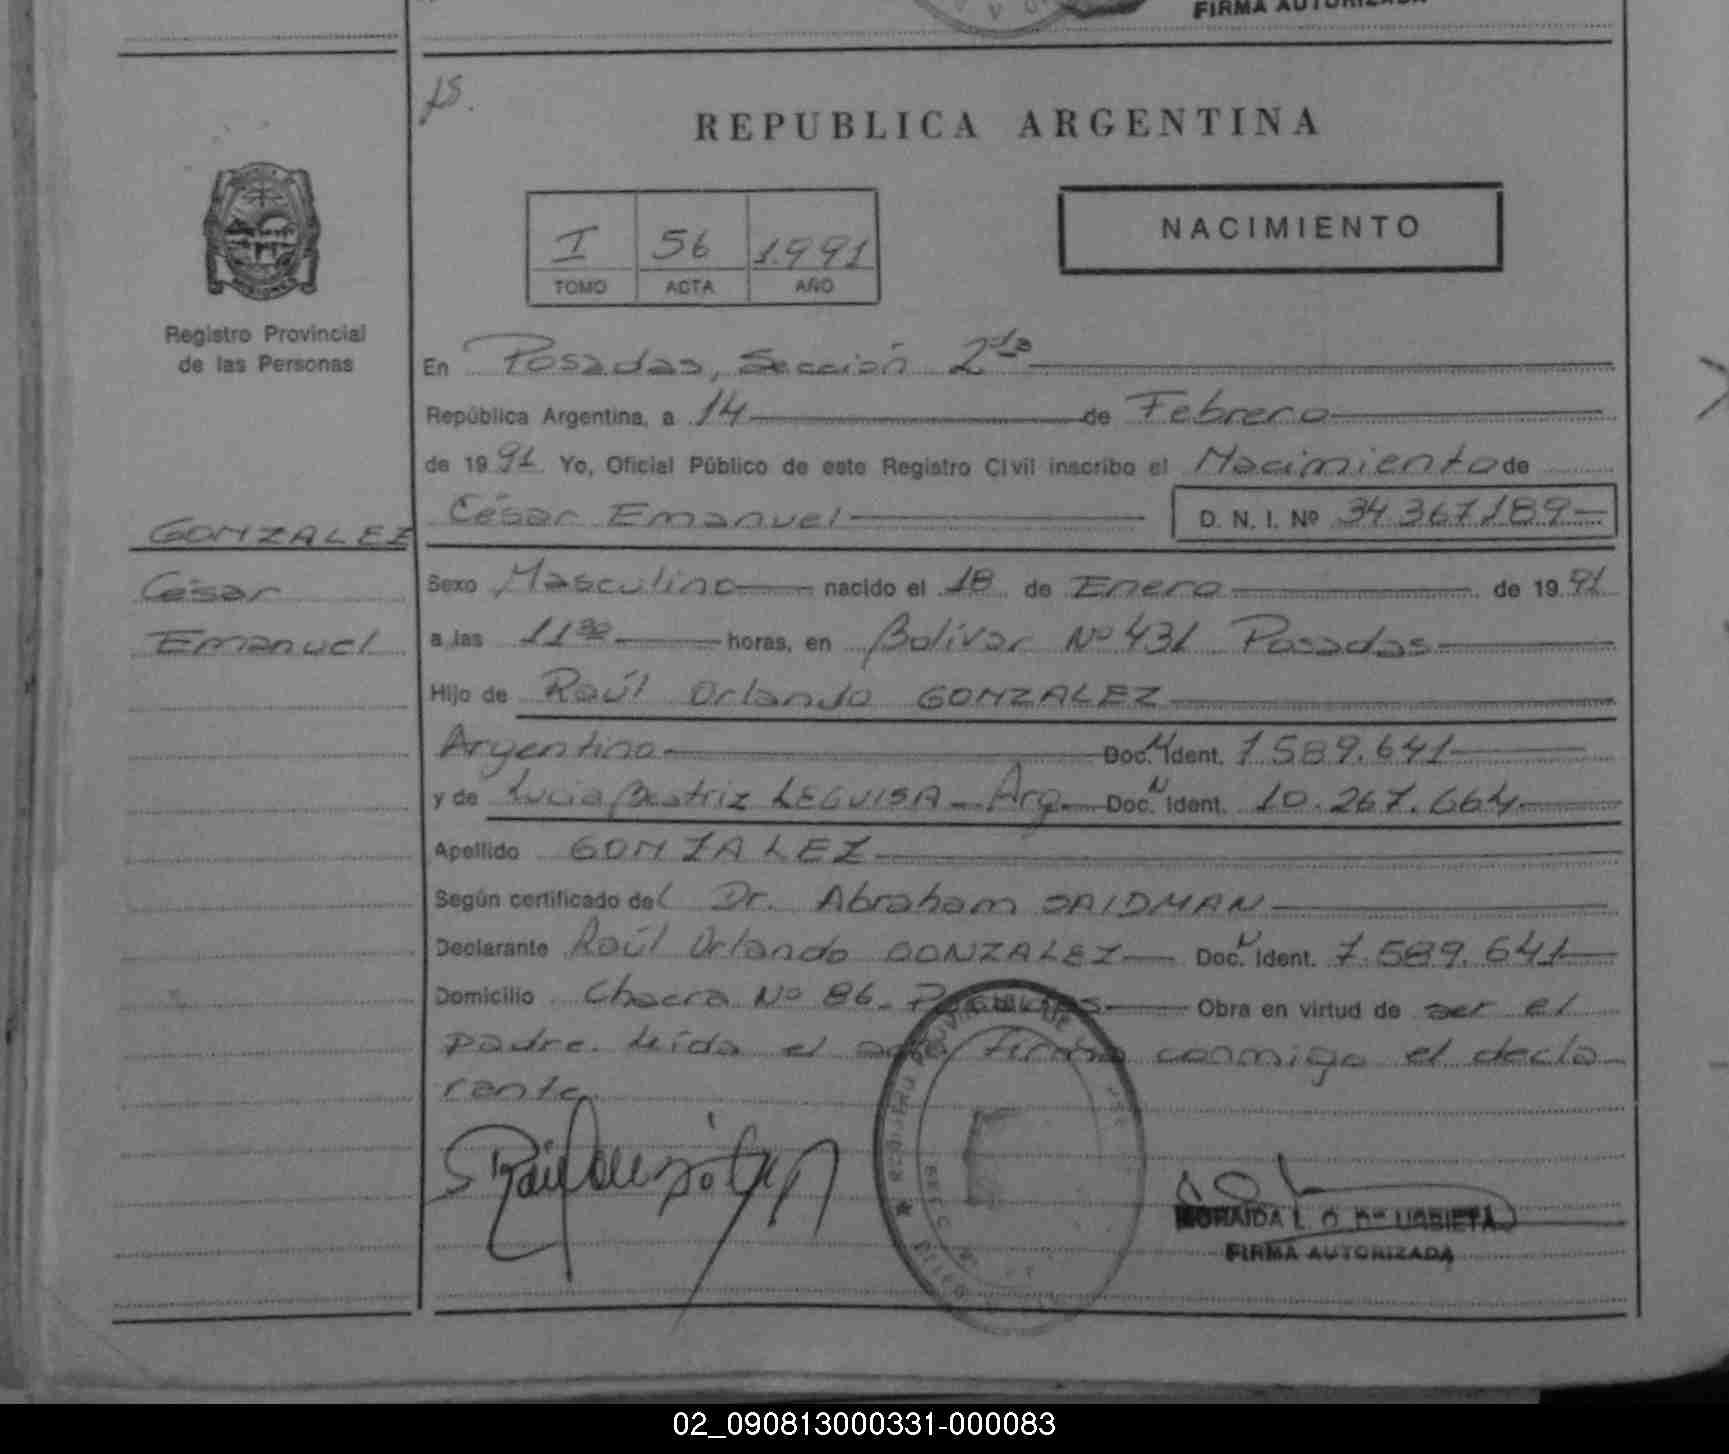 FIRMA AUTORIZADA
fs.
REPUBLICA ARGENTINA
I 56 1991
TOMO ACTA AÑO
NACIMIENTO
Registro Provincial
de las Personas
En Posadas, Sección 2da
República Argentina, a 14 de Febrero
de 1991 Yo, Oficial Público de este Registro Civil inscribo el Nacimiento de
César Emanuel D. N. I. Nº 34.367.189
GONZALEZ
César
Emanuel
Sexo Masculino nacido el 18 de Enero de 1991
a las 11 30 horas, en Bolívar Nº 431 Posadas
Hijo de Raúl Orlando GONZALEZ
Argentino Doc. N Ident. 7.589.641
y de Lucia Beatriz LEGUISA - Arg. Doc. N Ident. 10.267.664
Apellido GONZALEZ
Según certificado del Dr. Abraham SAIDMAN
Declarante Raúl Orlando GONZALEZ Doc. N Ident. 7.589.641
Domicilio Chacra Nº 86 - Posadas Obra en virtud de ser el
padre. Leída el acta, firma conmigo el decla
rante
REGISTRO PROVINCIAL DE
FIRMA AUTORIZADA
02_090813000331-000083